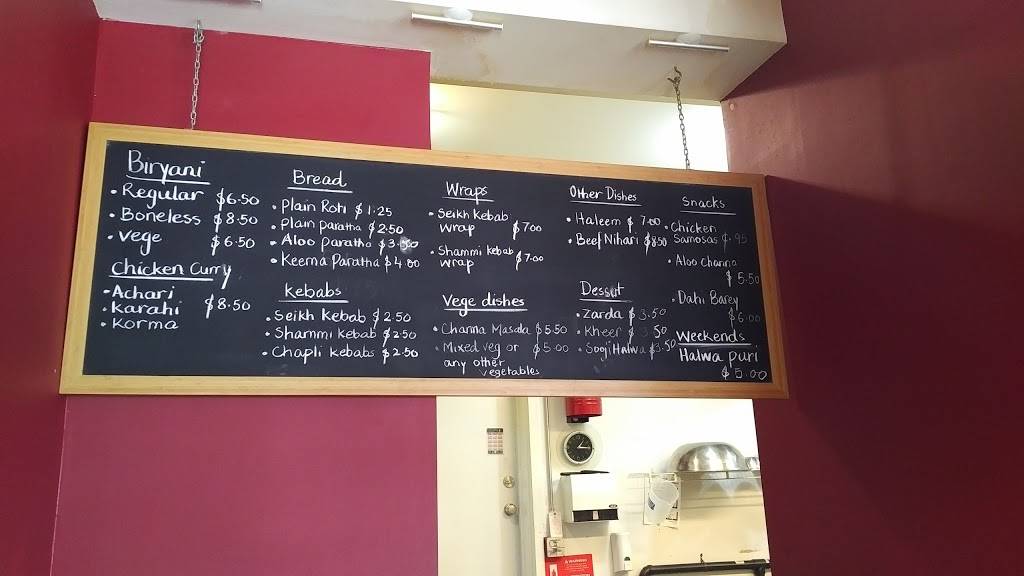 Biryani
• Regular $6.50
• Boneless $8.50
• vege $6.50
Chicken Curry
• Achari
• Karahi $8.50
• Korma
Bread
• Plain Roti $1.25
• Plain paratha $2.50
• Aloo paratha
• Keema Paratha $4.00
Kebabs
• Seikh Kebab $2.50
• Shammi kebab $2.50
• Chapli kebabs $2.50
Wraps
• Seikh Kebab
wrap $7.00
• Shammi kebab
wrap $7.00
Vege dishes
• Channa Masala $5.50
• Mixed veg or $5.00
any other
vegetables
Other Dishes
• Haleem $7.00
• Beef Nihari $8.50
Dessut
• Zarda $3.50
• Kheer $3.50
• Sooji Halwa $3.50
Snacks
• Chicken
Samosas
• Aloo Channa
$5.50
• Dahi Barey
$6.00
Weekends
Halwa puri
$5.00